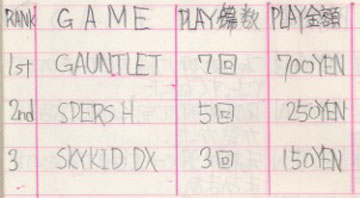 RANK GAME PLAY回数 PLAY金額
1st GAUNTLET 7回 700YEN
2nd SPERS H 5回 250YEN
3 SKYKID DX 3回 150YEN